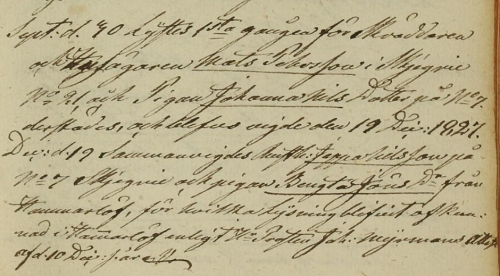 Sept: d. 30 Lystes 1sta gången för Skräddaren
och Husägaren Mats Pehrsson i Skjegrie
No 21, och Pigan Johanna Nils Dotter på No 7
derstädes, och blefvo vigde den 19 Dec: 1827.
Dec: d. 19 Sammanvigdes Jeppa Nilsson på
No 7 Skjegrie och pigan Bengta Jöns Dr från
Hammarlöf, för hvilka lysning blifvit afkun-
nad i Hammarlöf enligt Hr Prosten Joh: Myrmans attest
af d. 10 Dec: